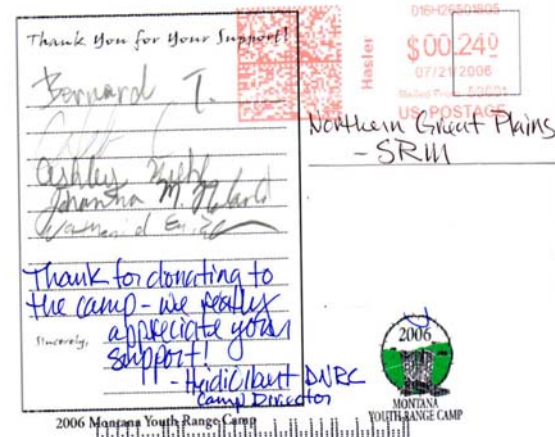 Thank You for Your Support!
Bernard T.
Ashley
Thank for donating to
the camp - we really
appreciate your
support!
Sincerely,
- Heidi DNRC
Camp Director
2006 Montana Youth Range Camp
016H26501805
Hasler
$00.240
07/21/2006
Mailed From
US POSTAGE
Northern Great Plains
- SRM
2006
MONTANA
YOUTH RANGE CAMP